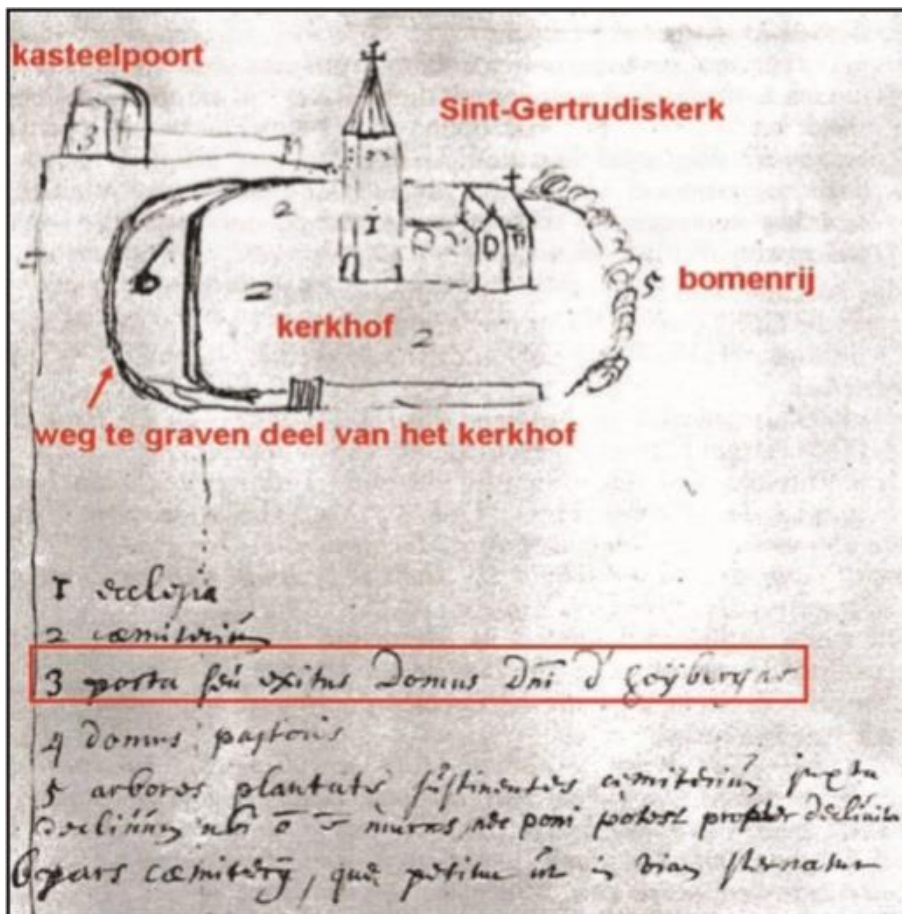 kasteelpoort
Sint-Gertrudiskerk
3
2
1
6
2
5 bomenrij
kerkhof
2
weg te graven deel van het kerkhof
1 ecclesia
2 cæmiteriū
3 porta seu exitus Domus Dn̄i d'
4 domus pastoris
5 arbores plantate sustinentes cæmiteriū juxta
ubi murus, nec poni potest propter
6 pars cæmiterij, quæ petitur ut in viam sternatur